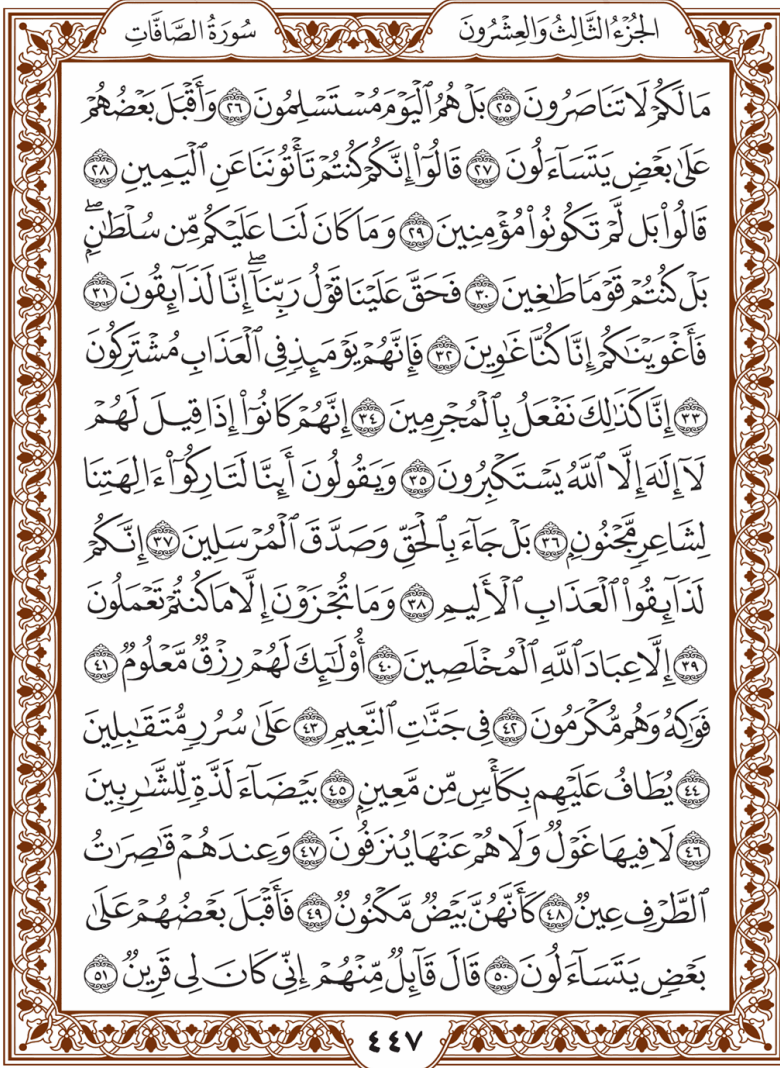 الجُزْءُ الثَّالِثُ وَالعِشْرُونَ
سُورَةُ الصَّافَّاتِ
مَا لَكُمْ لَا تَنَاصَرُونَ ٢٥ بَلْ هُمُ ٱلْيَوْمَ مُسْتَسْلِمُونَ ٢٦ وَأَقْبَلَ بَعْضُهُمْ
عَلَىٰ بَعْضٖ يَتَسَآءَلُونَ ٢٧ قَالُوٓاْ إِنَّكُمْ كُنتُمْ تَأْتُونَنَا عَنِ ٱلْيَمِينِ ٢٨
قَالُواْ بَل لَّمْ تَكُونُواْ مُؤْمِنِينَ ٢٩ وَمَا كَانَ لَنَا عَلَيْكُم مِّن سُلْطَٰنِۭۖ
بَلْ كُنتُمْ قَوْمٗا طَٰغِينَ ٣٠ فَحَقَّ عَلَيْنَا قَوْلُ رَبِّنَآۖ إِنَّا لَذَآئِقُونَ ٣١
فَأَغْوَيْنَٰكُمْ إِنَّا كُنَّا غَٰوِينَ ٣٢ فَإِنَّهُمْ يَوْمَئِذٖ فِي ٱلْعَذَابِ مُشْتَرِكُونَ
٣٣ إِنَّا كَذَٰلِكَ نَفْعَلُ بِٱلْمُجْرِمِينَ ٣٤ إِنَّهُمْ كَانُوٓاْ إِذَا قِيلَ لَهُمْ
لَآ إِلَٰهَ إِلَّا ٱللَّهُ يَسْتَكْبِرُونَ ٣٥ وَيَقُولُونَ أَئِنَّا لَتَارِكُوٓاْ ءَالِهَتِنَا
لِشَاعِرٖ مَّجْنُونِۭ ٣٦ بَلْ جَآءَ بِٱلْحَقِّ وَصَدَّقَ ٱلْمُرْسَلِينَ ٣٧ إِنَّكُمْ
لَذَآئِقُواْ ٱلْعَذَابِ ٱلْأَلِيمِ ٣٨ وَمَا تُجْزَوْنَ إِلَّا مَا كُنتُمْ تَعْمَلُونَ
٣٩ إِلَّا عِبَادَ ٱللَّهِ ٱلْمُخْلَصِينَ ٤٠ أُوْلَٰٓئِكَ لَهُمْ رِزْقٞ مَّعْلُومٞ ٤١
فَوَٰكِهُ وَهُم مُّكْرَمُونَ ٤٢ فِي جَنَّٰتِ ٱلنَّعِيمِ ٤٣ عَلَىٰ سُرُرٖ مُّتَقَٰبِلِينَ
٤٤ يُطَافُ عَلَيْهِم بِكَأْسٖ مِّن مَّعِينِۭ ٤٥ بَيْضَآءَ لَذَّةٖ لِّلشَّٰرِبِينَ
٤٦ لَا فِيهَا غَوْلٞ وَلَا هُمْ عَنْهَا يُنزَفُونَ ٤٧ وَعِندَهُمْ قَٰصِرَٰتُ
ٱلطَّرْفِ عِينٞ ٤٨ كَأَنَّهُنَّ بَيْضٞ مَّكْنُونٞ ٤٩ فَأَقْبَلَ بَعْضُهُمْ عَلَىٰ
بَعْضٖ يَتَسَآءَلُونَ ٥٠ قَالَ قَآئِلٞ مِّنْهُمْ إِنِّي كَانَ لِي قَرِينٞ ٥١
٤٤٧